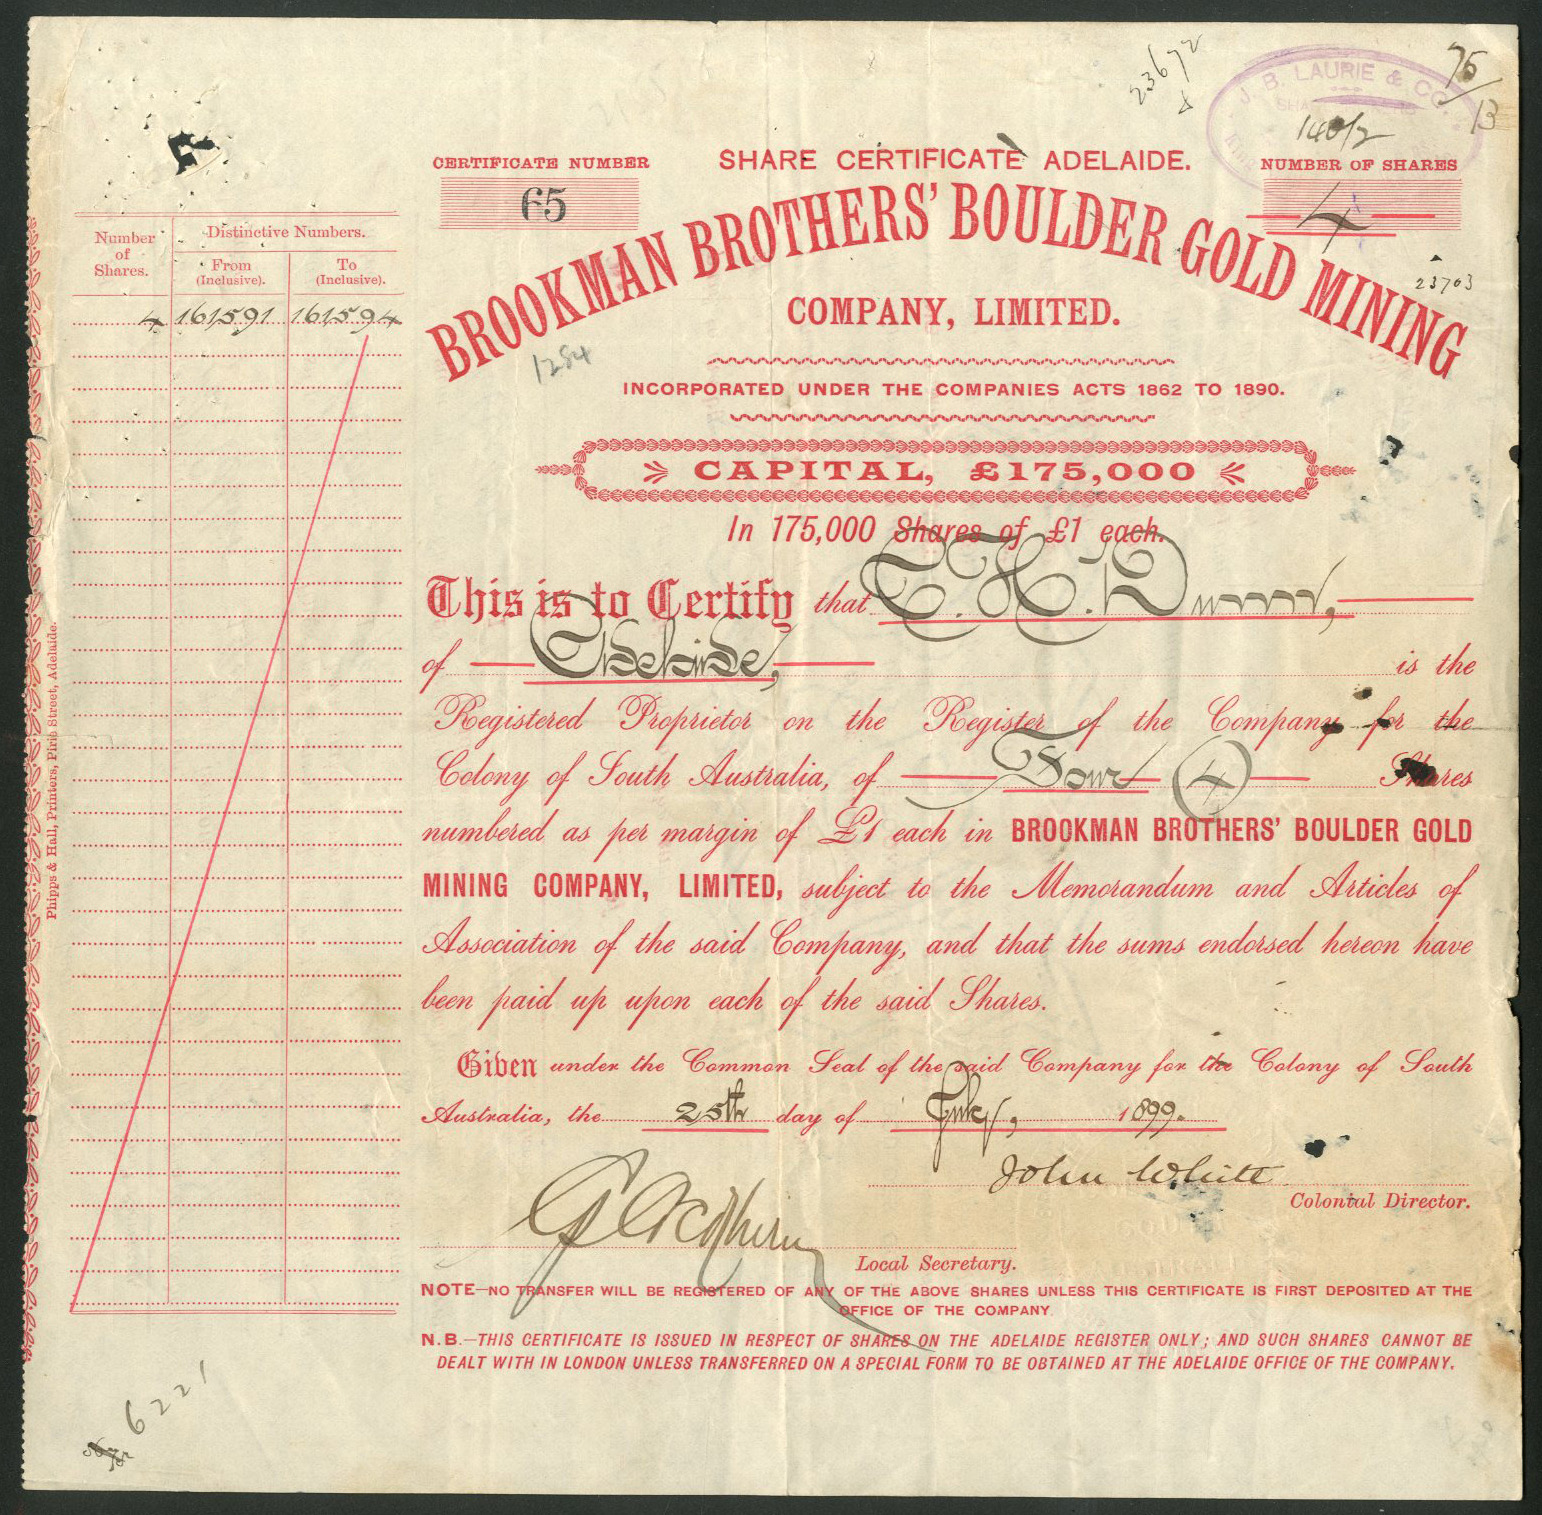 23672
75
13
J. B. LAURIE & CO.
140/2
CERTIFICATE NUMBER
65
SHARE CERTIFICATE ADELAIDE.
NUMBER OF SHARES
4
23703
BROOKMAN BROTHERS' BOULDER GOLD MINING
COMPANY, LIMITED.
1284
INCORPORATED UNDER THE COMPANIES ACTS 1862 TO 1890.
CAPITAL, £175,000
In 175,000 Shares of £1 each.
Number of Shares.
Distinctive Numbers.
From (Inclusive).
To (Inclusive).
4 161591 161594
This is to Certify that C. H. Dunn,
of Adelaide, is the
Registered Proprietor on the Register of the Company for the
Colony of South Australia, of Four (4) Shares
numbered as per margin of £1 each in BROOKMAN BROTHERS' BOULDER GOLD
MINING COMPANY, LIMITED, subject to the Memorandum and Articles of
Association of the said Company, and that the sums endorsed hereon have
been paid up upon each of the said Shares.
Given under the Common Seal of the said Company for the Colony of South
Australia, the 25th day of July, 1899.
John White
Colonial Director.
Local Secretary.
NOTE—NO TRANSFER WILL BE REGISTERED OF ANY OF THE ABOVE SHARES UNLESS THIS CERTIFICATE IS FIRST DEPOSITED AT THE
OFFICE OF THE COMPANY.
N.B.—THIS CERTIFICATE IS ISSUED IN RESPECT OF SHARES ON THE ADELAIDE REGISTER ONLY; AND SUCH SHARES CANNOT BE
DEALT WITH IN LONDON UNLESS TRANSFERRED ON A SPECIAL FORM TO BE OBTAINED AT THE ADELAIDE OFFICE OF THE COMPANY.
Phipps & Hall, Printers, Pirie Street, Adelaide.
6221